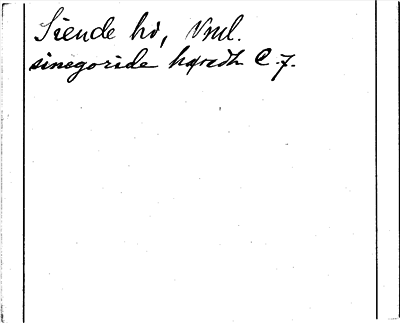 Siende hd, Vml.
sinegoride hæredh C. 7.